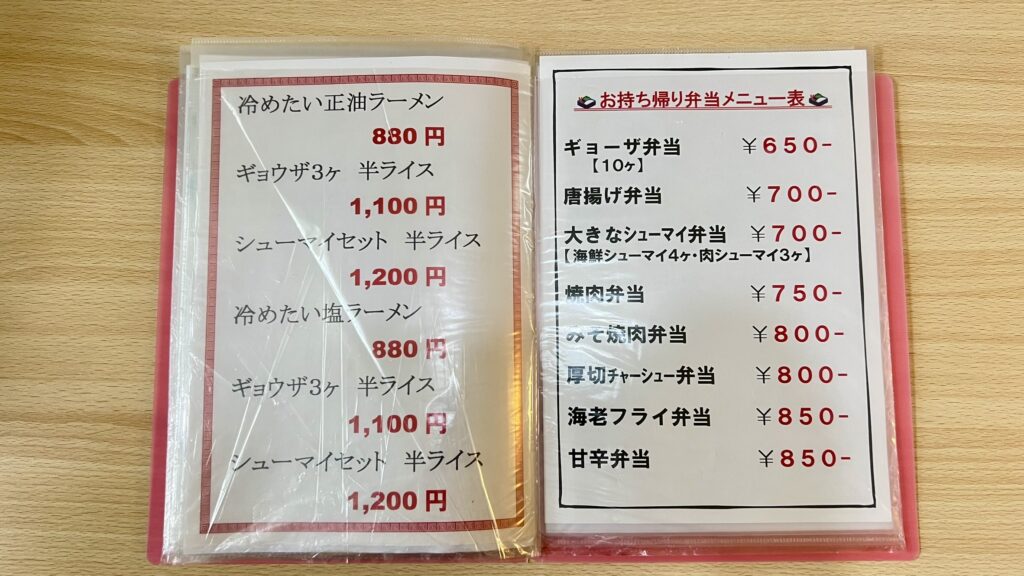 冷めたい正油ラーメン
880 円
ギョウザ3ヶ 半ライス
1,100 円
シューマイセット 半ライス
1,200 円
冷めたい塩ラーメン
880 円
ギョウザ3ヶ 半ライス
1,100 円
シューマイセット 半ライス
1,200 円
お持ち帰り弁当メニュー表
ギョーザ弁当 ￥650-
【10ヶ】
唐揚げ弁当 ￥700-
大きなシューマイ弁当 ￥700-
【海鮮シューマイ4ヶ・肉シューマイ3ヶ】
焼肉弁当 ￥750-
みそ焼肉弁当 ￥800-
厚切チャーシュー弁当 ￥800-
海老フライ弁当 ￥850-
甘辛弁当 ￥850-